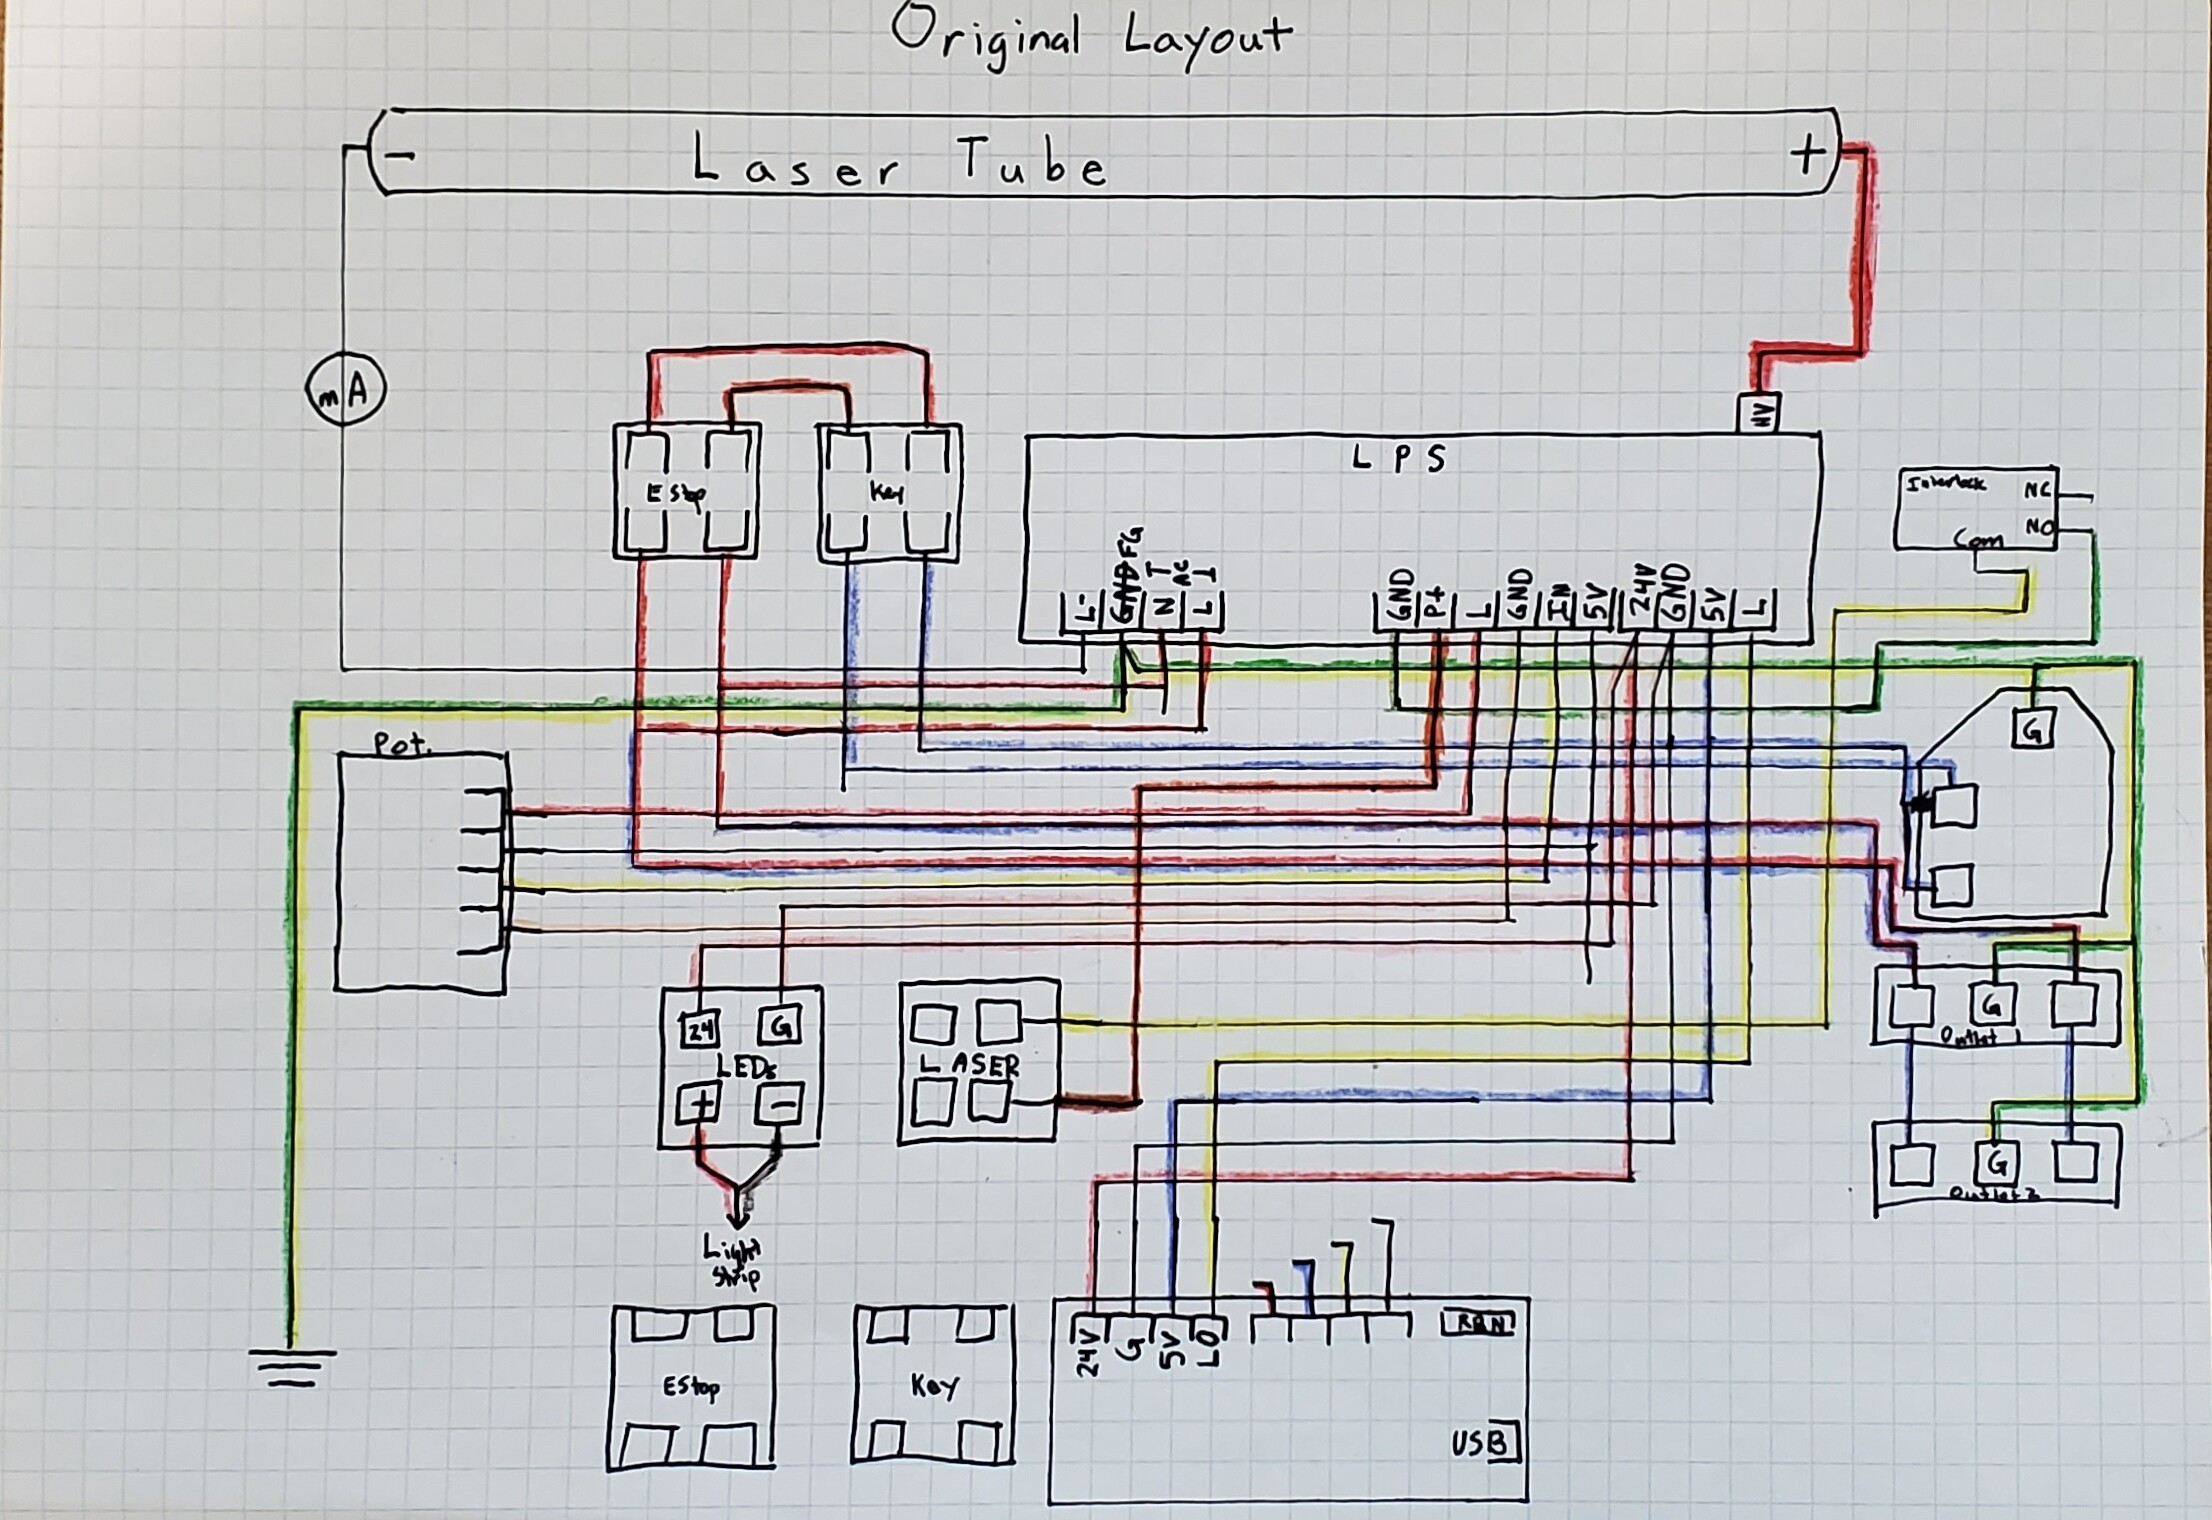 Original Layout
−
Laser Tube
+
mA
HV
LPS
E Stop
Key
Interlock
NC
NO
Com
L-
FG
N
AC
L
GND
P+
L
GND
IN
5V
24V
GND
5V
L
Pot.
G
24
G
LEDs
+
−
LASER
G
Outlet 1
G
Outlet 2
Light
Strip
EStop
Key
24V
G
5V
LO
USB